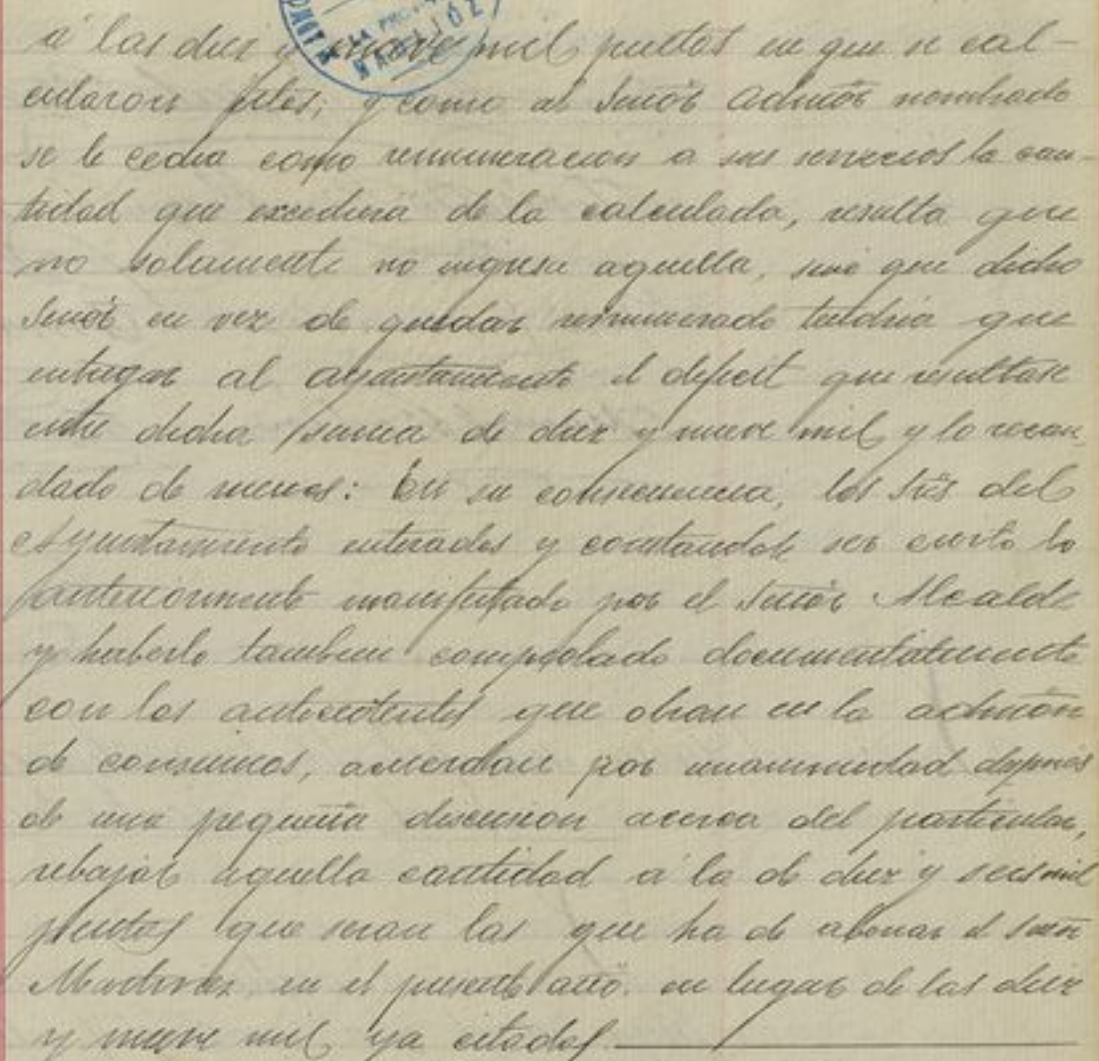 á las diez y nueve mil pesetas en que se cal-
cularon estos; y como al Señor Admor nombrado
se le cedia como remuneracion a sus servicios la can-
tidad que excediera de la calculada, resulta que
no solamente no ingresa aquella, sino que dicho
Señor en vez de quedar remunerado tendria que
entregar al ayuntamiento el deficit que resultase
entre dicha suma de diez y nueve mil y lo recau
dado de menos: En su consecuencia, los Srs del
Ayuntamiento enterados y constandole ser cierto lo
anteriormente manifestado por el Señor Alcalde
y haberlo tambien comprobado documentalmente
con los antecedentes que obran en la admon
de consumos, acuerdan por unanimidad despues
de una pequeña discusion acerca del particular,
rebajar aquella cantidad á la de diez y seis mil
pesetas que seran las que ha de abonar el señor
Martinez en el presente año en lugar de las diez
y nueve mil ya citadas.
LA PROV
BADAJOZ